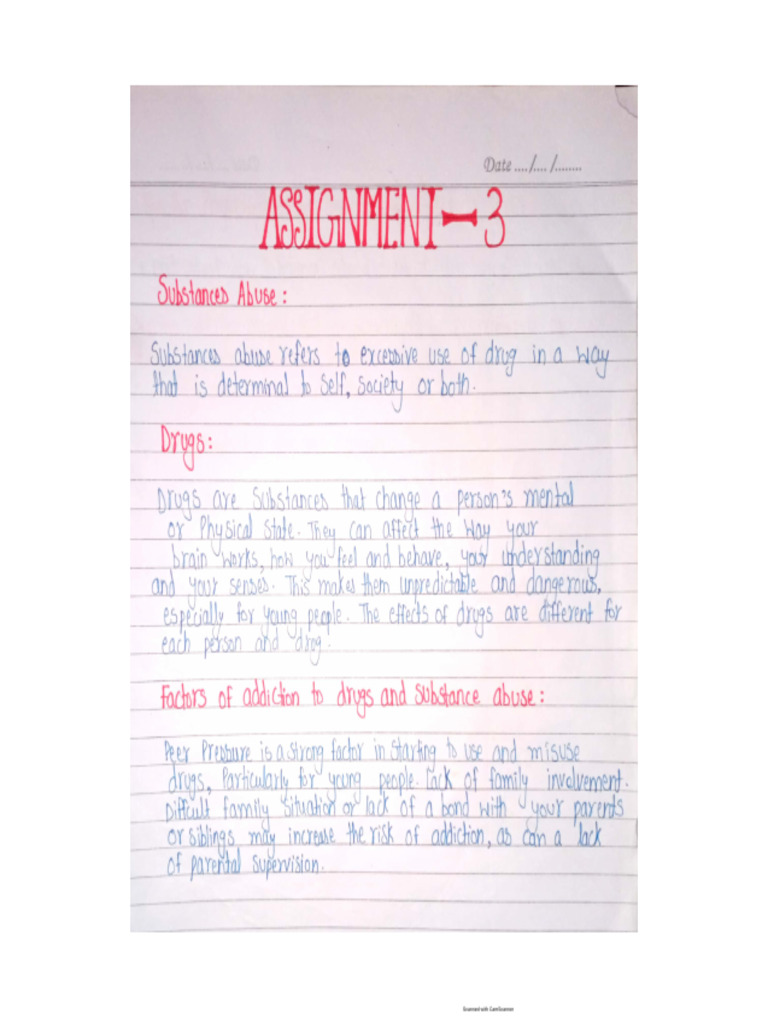 Date ..../..../........
ASSIGNMENT-3
Substances Abuse:
Substances abuse refers to excessive use of drug in a way
that is determinal to self, society or both.
Drugs:
Drugs are Substances that change a person's mental
or Physical State. They can affect the way your
brain works, how you feel and behave, your understanding
and your senses. This makes them unpredictable and dangerous,
especially for young people. The effects of drugs are different for
each person and drug.
Factors of addiction to drugs and substance abuse:
Peer Pressure is a strong factor in starting to use and misuse
drugs, Particularly for young people. Lack of family involvement.
Difficult family situation or lack of a bond with your parents
or siblings may increase the risk of addiction, as can a lack
of parental supervision.
Scanned with CamScanner